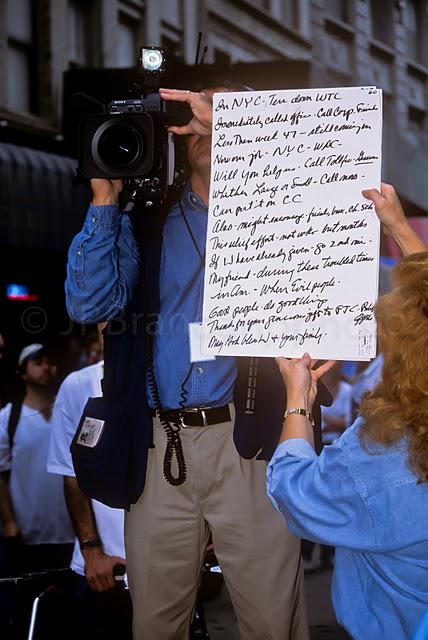 SONY
60
In NYC - Terr down WTC
Immediately called office - Call Corp. Friends
Less Then week 47 - still coming in
Now our job - NYC - WAC -
Will You help us - Call Tollfree -
Whether Large or Small - Call now -
Can put it on C C
Also - might encourage - friends, bus, ch, Sch
This relief effort - not wks - but months
If U have already given - go 2nd mi -
My friend - during these troubled times
in Am. - When Evil people -
Good people - do good things
Thank for your generous gifts to FTC -
May God bless U + your family.
© J